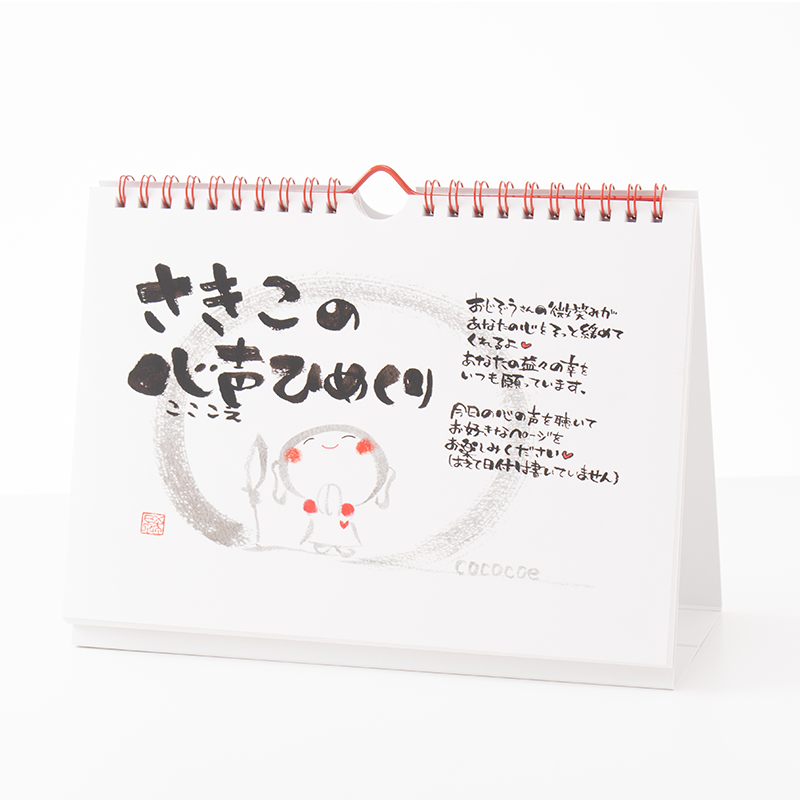 さきこの
心声ひめくり
こここえ
おじぞうさんの微笑みが
あなたの心をそっと緩めて
くれるよ
あなたの益々の幸を
いつも願っています。
今日の心の声を聴いて
お好きなページを
お楽しみください
(あえて日付は書いていません)
cococoe